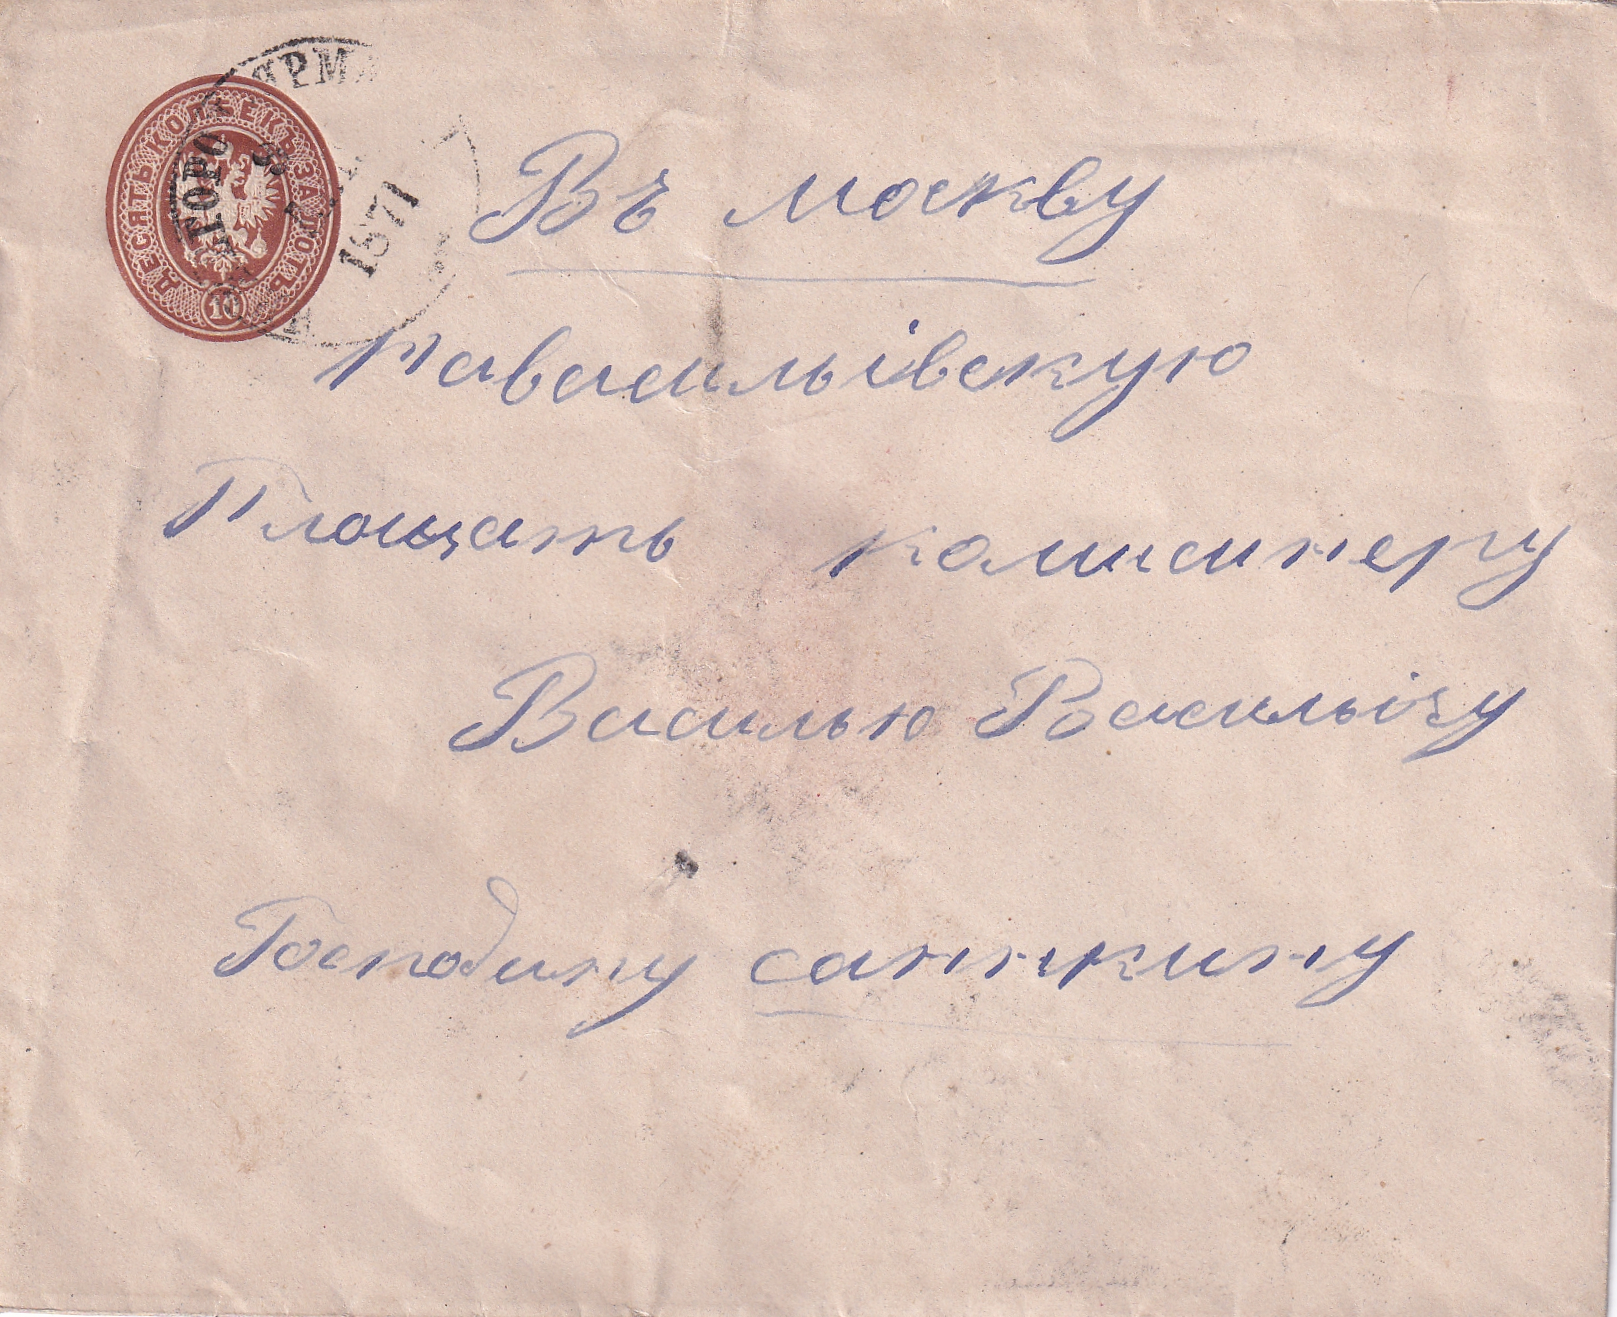 ДЕСЯТЬ КОПѢЕКЪ ЗА ЛОТЪ
10
ЯРМ
1871
Въ москву
Навасильівскую
Площать комисинеру
Василью Васильічу
Господину саннкину